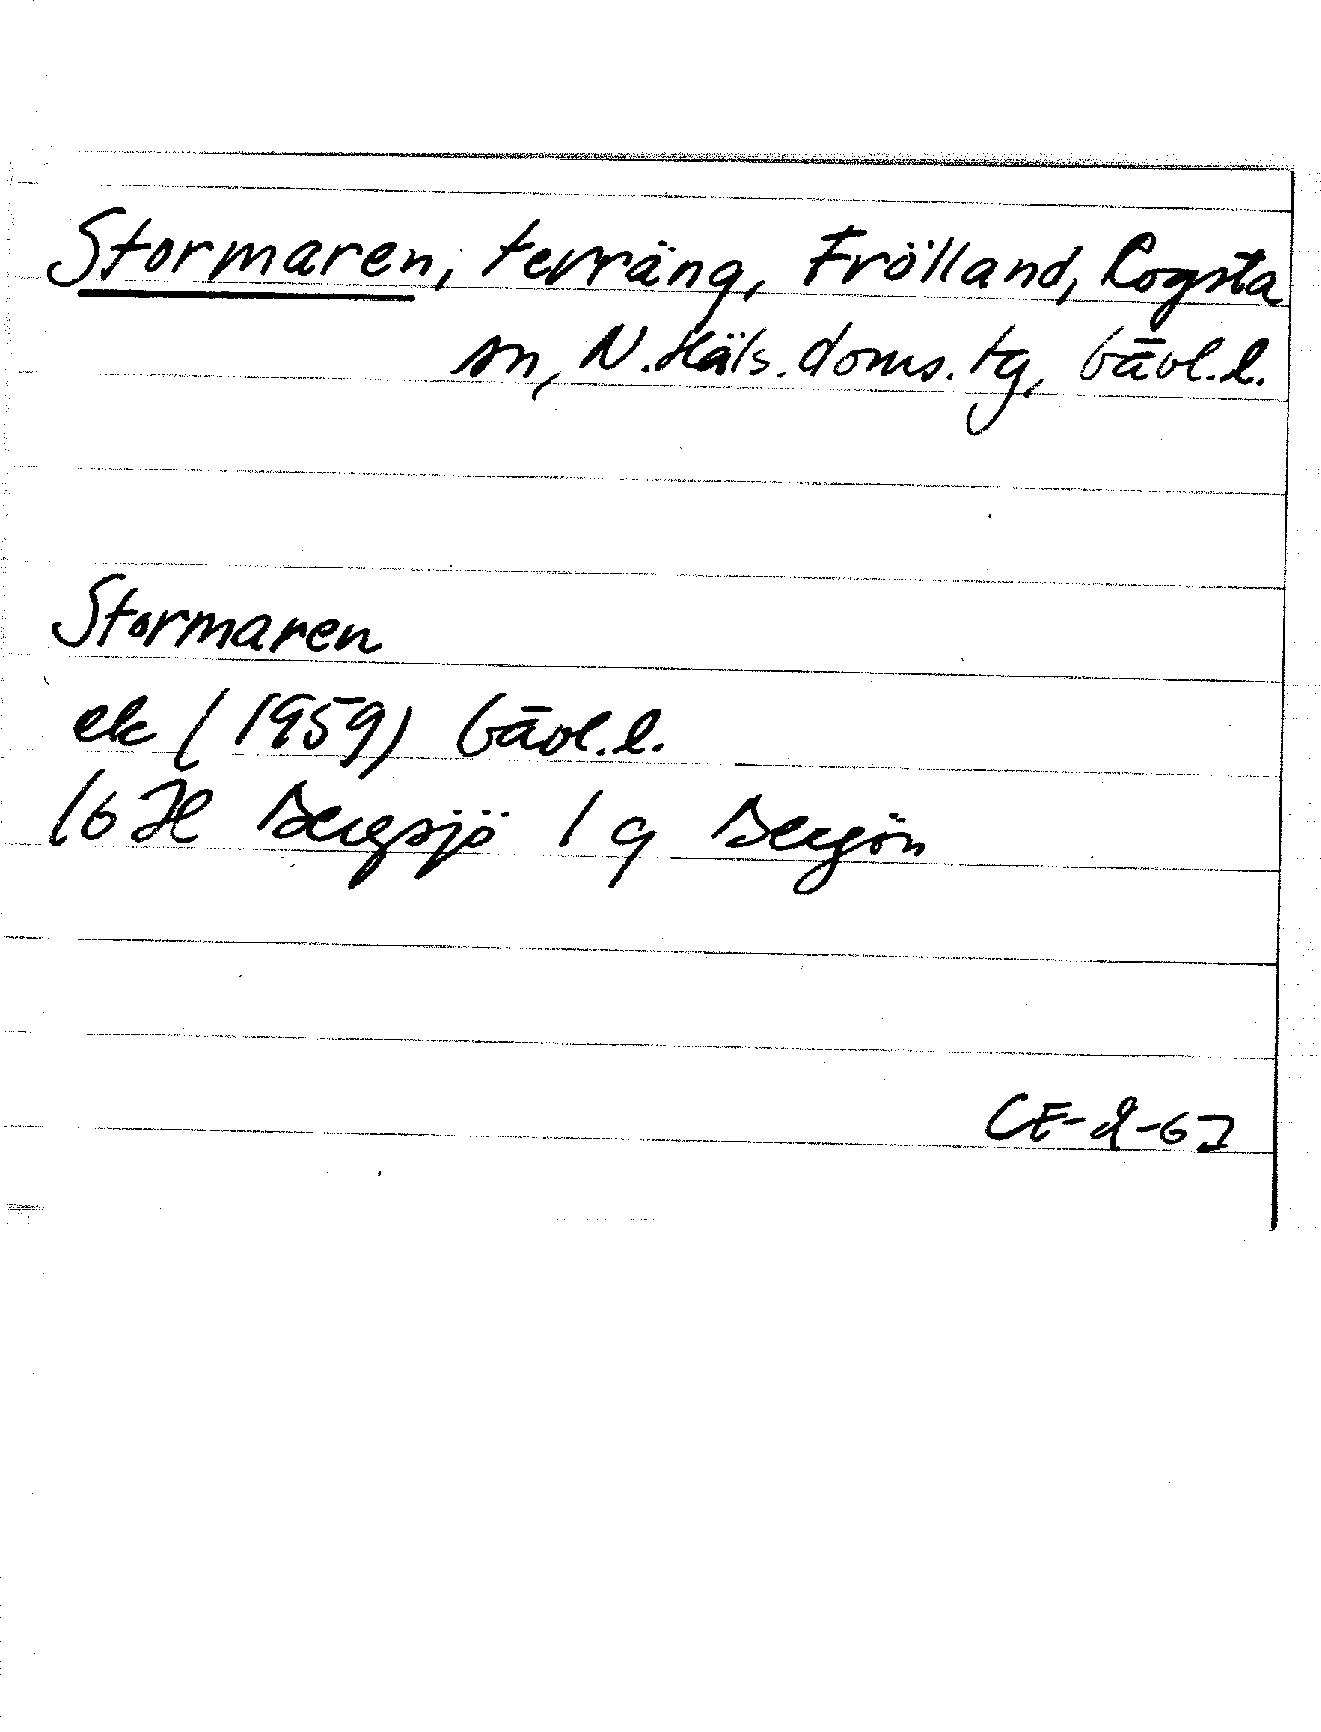 Stormaren, terräng, Frölland, Rogsta
sn, N. Häls. doms. tg, Gävl. l.
Stormaren
ek (1959) Gävl. l.
16 H Bergsjö 1 g Bergön
CE-d-67